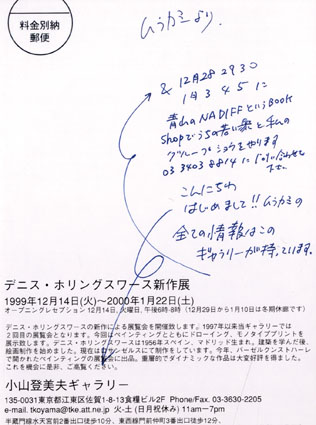 料金別納
郵便
ムラカミより.
& 12月28 29 30
1月 3 4 5 に
青山のNADIFFというBOOK
Shopでうちの若い衆と私の
グループショウをやります
03 3403 8814 に
こんにちわ
はじめまして!! ムラカミの
全ての情報はこの
ギャラリーが持っています.
デニス・ホリングスワース新作展
1999年12月14日(火)〜2000年1月22日(土)
オープニングレセプション 12月14日、火曜日、午後6時-8時 (12月29日から1月10日は冬期休廊です)
デニス・ホリングスワースの新作による展覧会を開催致します。1997年に来当ギャラリーでは
2回目の展覧会となります。今回はペインティングとともにドローイング、モノタイププリントを
展示致します。デニス・ホリングスワースは1956年スペイン、マドリッド生まれ。建築を学んだ後、
絵画制作を始めました。現在はロサンゼルスにて制作をしています。今年、バーゼルクンストハーレ
で開かれたペインティングの展覧会に出品。重層的でダイナミックな作品は大変好評を得ました。
これを機会に是非、ご高覧ください。
小山登美夫ギャラリー
135-0031東京都江東区佐賀1-8-13食糧ビル2F Phone/Fax. 03-3630-2205
e-mail. tkoyama@tke.att.ne.jp 火-土 (日月祝休み) 11am-7pm
半蔵門線水天宮前2番出口徒歩10分、東西線門前仲町3番出口徒歩12分、